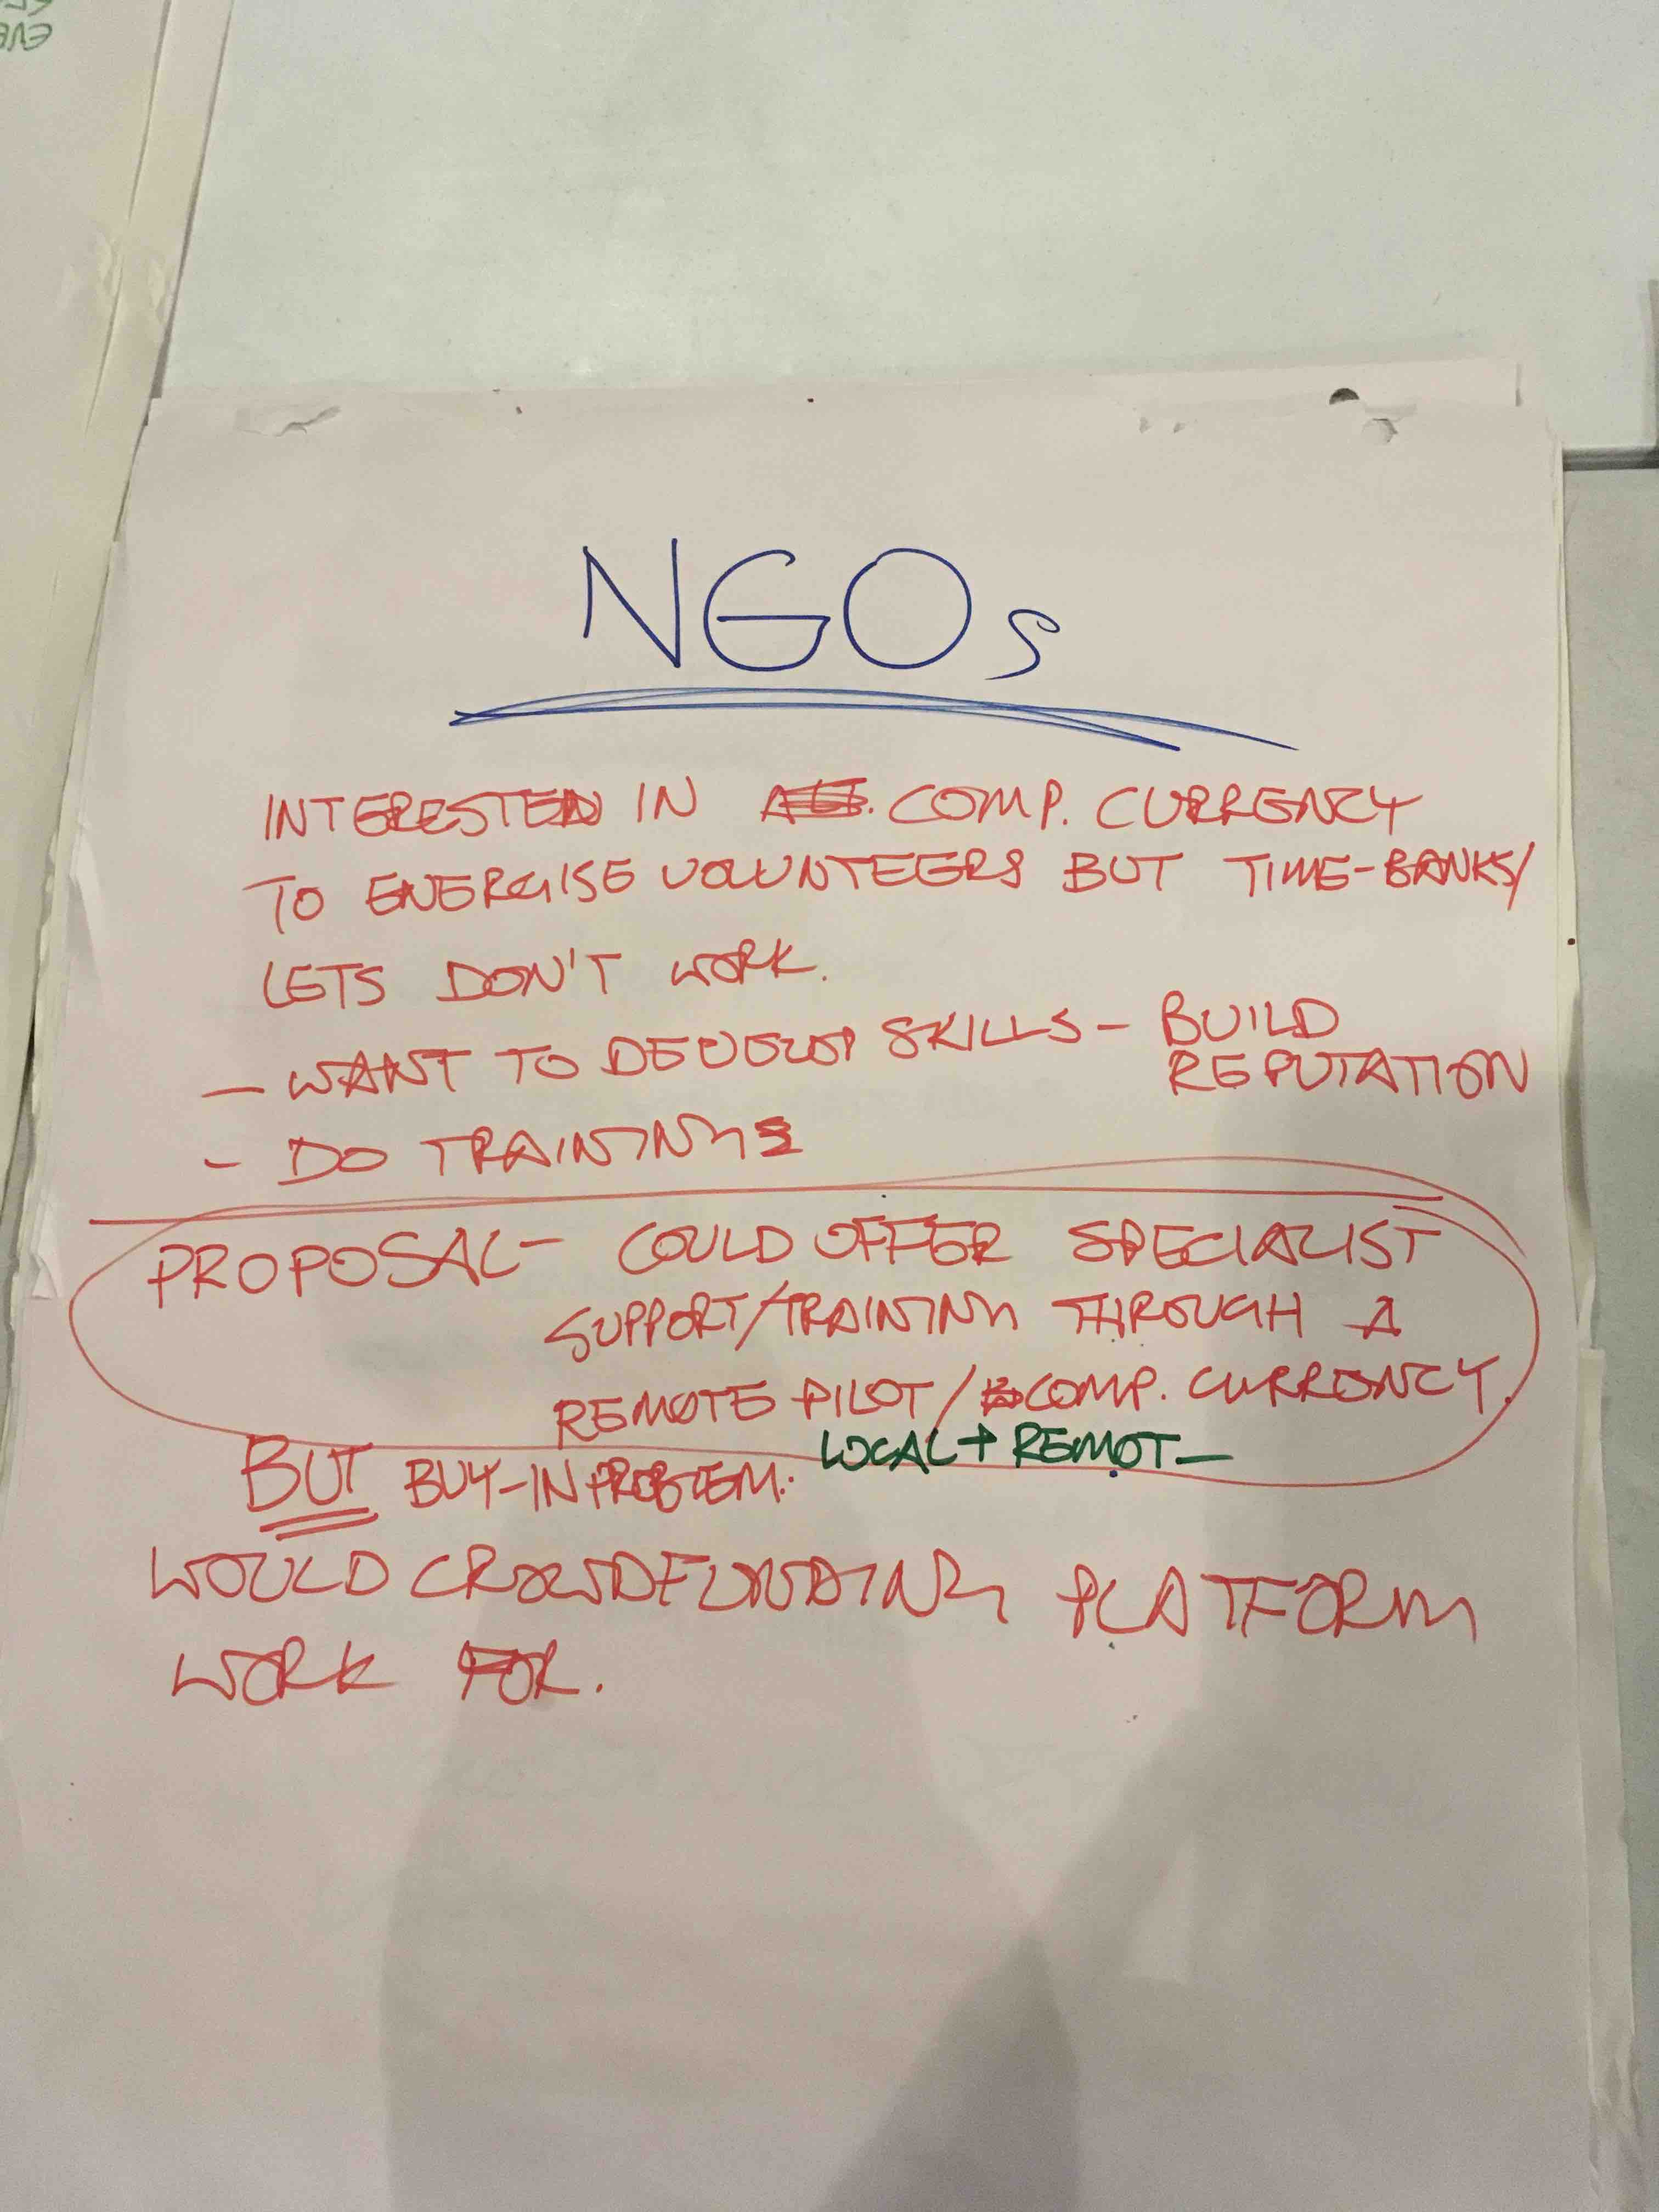 NGOs
INTERESTED IN COMP. CURRENCY
TO ENERGISE VOLUNTEERS BUT TIME-BANKS/
LETS DON'T WORK.
- WANT TO DEVELOP SKILLS - BUILD
REPUTATION
- DO TRAINING
PROPOSAL - COULD OFFER SPECIALIST
SUPPORT/TRAINING THROUGH A
REMOTE PILOT/COMP. CURRENCY.
LOCAL + REMOT-
BUT BUY-IN PROBLEM.
WOULD CROWDFUNDING PLATFORM
WORK FOR.